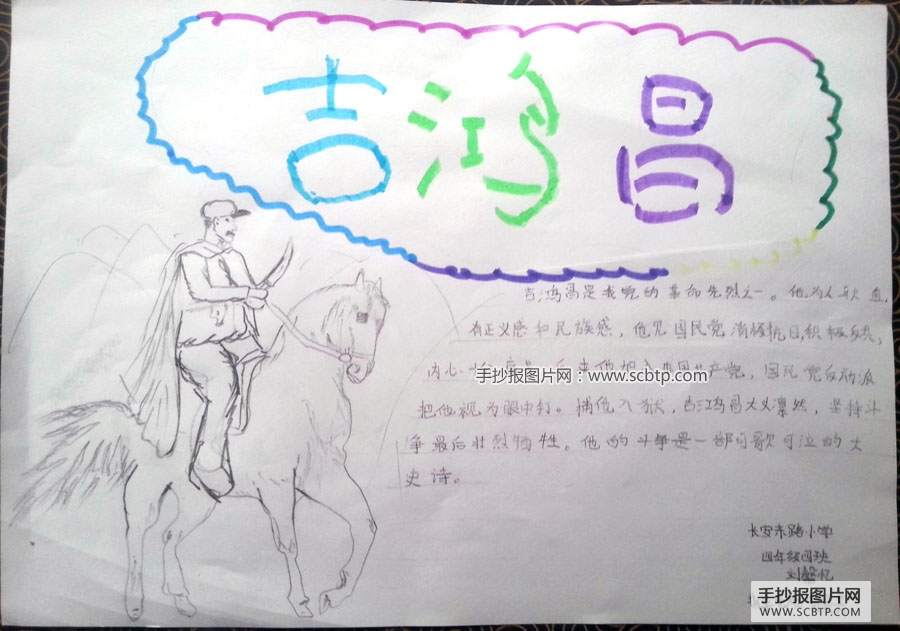 吉鸿昌
吉鸿昌是我党的革命先烈之一。他为人耿直,
有正义感和民族感,他见国民党消极抗日积极反共,
内心 后来他加入中国共产党,国民党反动派
手抄报图片网:www.scbtp.com
把他视为眼中钉。捕他入狱,吉鸿昌大义凛然,坚持斗
争最后壮烈牺牲。他的斗争是一部可歌可泣的大
史诗。
长安东路小学
四年级四班
刘 忆
手抄报图片网
WWW.SCBTP.COM